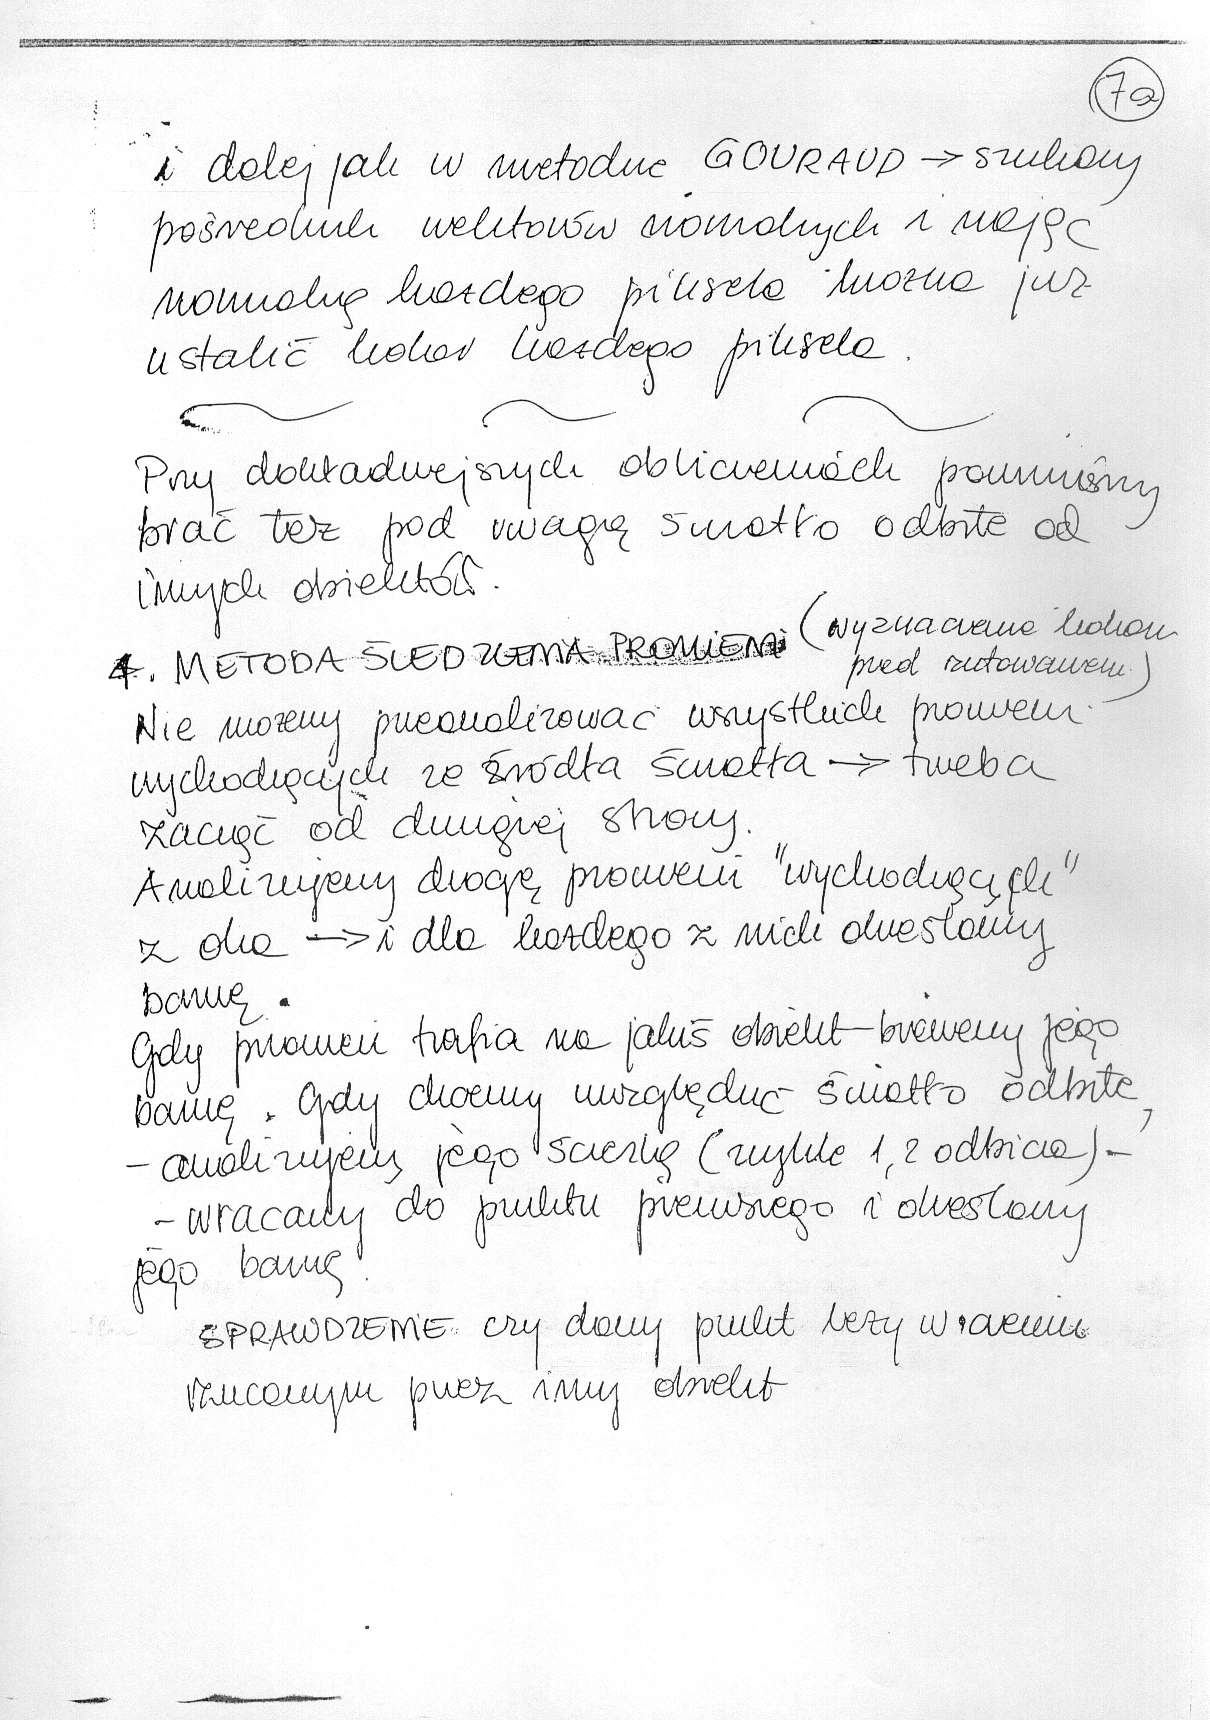 7a
i dalej jak w metodzie GOURAUD → szukamy
pośrednich wektorów normalnych i mając
normalną każdego piksela można już
ustalić kolor każdego piksela.
Przy dokładniejszych obliczeniach powinniśmy
brać też pod uwagę światło odbite od
innych obiektów.
4. METODA ŚLEDZENIA PROMIENI (wyznaczanie koloru
przed rzutowaniem)
Nie możemy przeanalizować wszystkich promieni
wychodzących ze źródła światła → trzeba
zacząć od drugiej strony.
Analizujemy drogę promieni "wychodzących"
z oka → i dla każdego z nich określamy
barwę.
Gdy promień trafia na jakiś obiekt – bierzemy jego
barwę. Gdy chcemy uwzględnić światło odbite,
– analizujemy jego ścieżkę (zwykle 1, 2 odbicia) –
– wracamy do punktu pierwszego i określamy
jego barwę.
SPRAWDZENIE czy dany punkt leży w cieniu
rzucanym przez inny obiekt